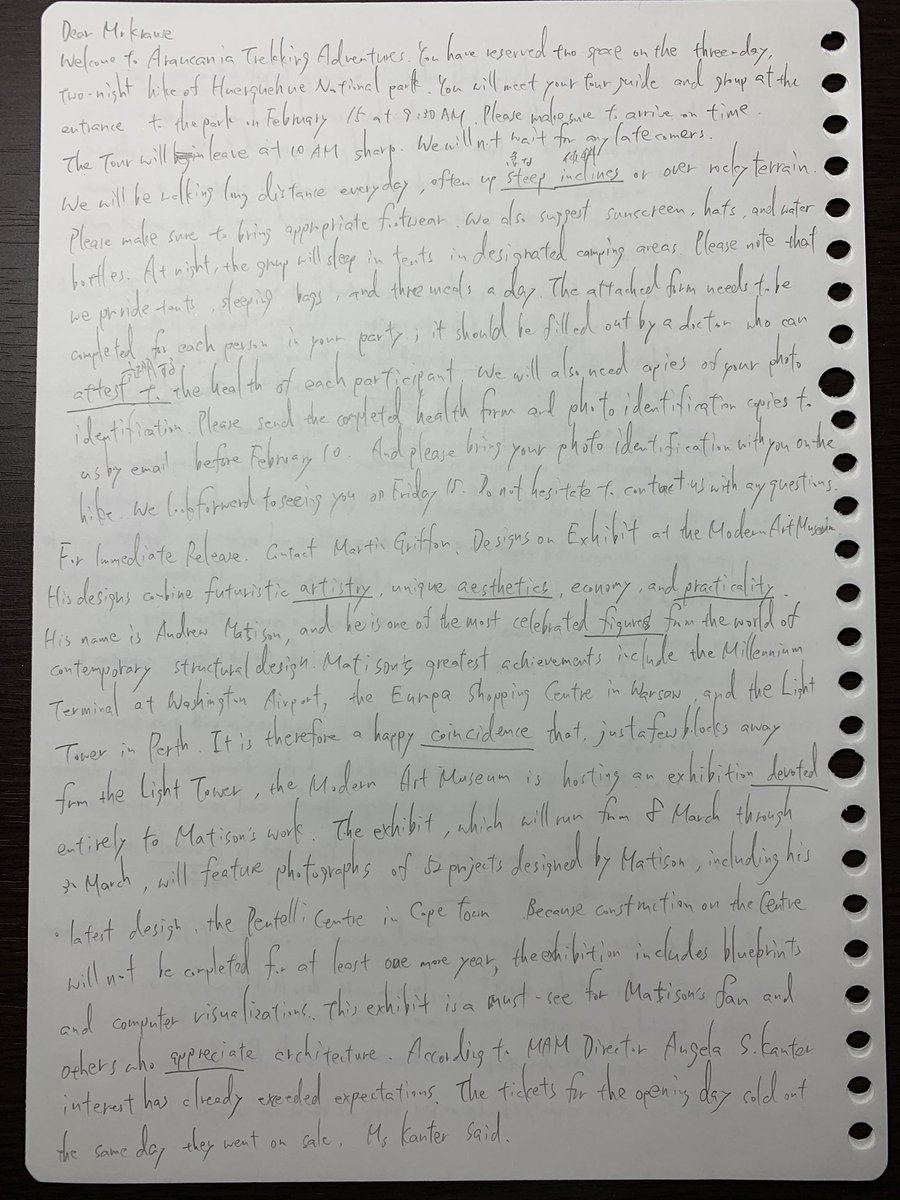 Dear Mr Krause
Welcome to Araucania Trekking Adventures. You have reserved two space on the three-day,
two-night hike of Huerquehue National park. You will meet your tour guide and group at the
entrance to the park on February 15 at 9:30 AM. Please make sure to arrive on time.
The Tour will leave at 10 AM sharp. We will not wait for any late comers.
急な 傾斜
We will be walking long distance everyday, often up steep inclines or over rocky terrain.
Please make sure to bring appropriate footwear. We also suggest sunscreen, hats, and water
bottles. At night, the group will sleep in tents in designated camping areas. Please note that
we provide tents, sleeping bags, and three meals a day. The attached form needs to be
completed for each person in your party; it should be filled out by a doctor who can
attest to the health of each participant. We will also need copies of your photo
identification. Please send the completed health form and photo identification copies to
us by email before February 10. And please bring your photo identification with you on the
hike. We look forward to seeing you on Friday 15. Do not hesitate to contact us with any questions.
For Immediate Release. Contact Martin Griffon. Designs on Exhibit at the Modern Art Museum
His designs combine futuristic artistry, unique aesthetics, economy, and practicality.
His name is Andrew Matison, and he is one of the most celebrated figures from the world of
contemporary structural design. Matison's greatest achievements include the Millennium
Terminal at Washington Airport, the Europa Shopping Centre in Warsaw, and the Light
Tower in Perth. It is therefore a happy coincidence that, just a few blocks away
from the Light Tower, the Modern Art Museum is hosting an exhibition devoted
entirely to Matison's work. The exhibit, which will run from 8 March through
March, will feature photographs of 52 projects designed by Matison, including his
latest design, the Pentelli Centre in Cape Town. Because construction on the Centre
will not be completed for at least one more year, the exhibition includes blueprints
and computer visualizations. This exhibit is a must-see for Matison's fan and
others who appreciate architecture. According to MAM Director Angela S. Kanter
interest has already exceeded expectations. The tickets for the opening day sold out
the same day they went on sale, Ms Kanter said.